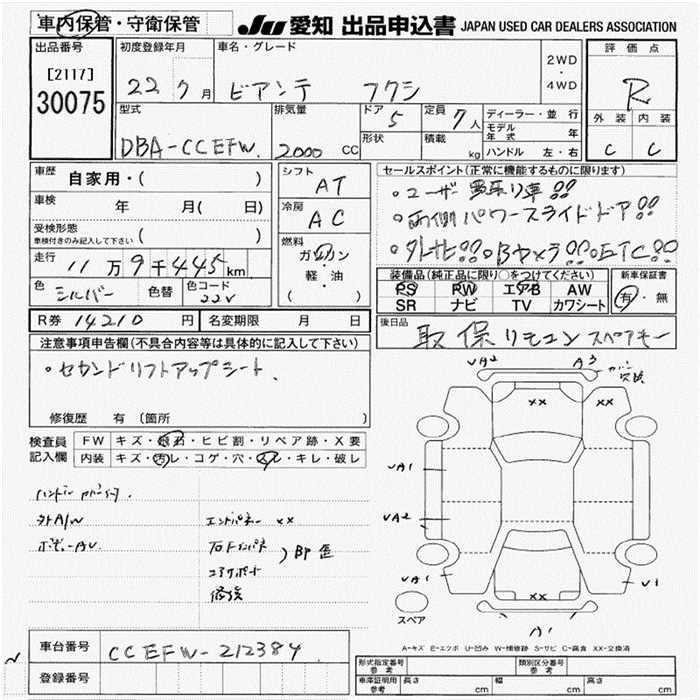 車内保管・守衛保管
JU 愛知 出品申込書 JAPAN USED CAR DEALERS ASSOCIATION
出品番号
[2117]
30075
初度登録年月
22 7 月
車名・グレード
ビアンテ フクシ
2WD
・
4WD
評価点
R
外装 内装
C C
型式
DBA-CCEFW.
排気量
2000 CC
ドア
5
形状
定員
7人
積載
kg
ディーラー・並行
モデル年式 年
ハンドル 左・右
車歴
自家用・( )
車検
年 月( 日)
受検形態
車検付きのみ記入して下さい ( )
走行
11万9千445km
色
シルバー
色替
色コード
22V
シフト
AT
冷房
AC
燃料
ガソリン
・
軽・油
( )
セールスポイント(正常に機能するものに限ります)
・ユーザー買取り車!!
・両側パワースライドドア!!
・外ナビ!!・Bカメラ!!・ETC!!
装備品(純正品に限り○をつけてください)
PS PW エアB AW
SR ナビ TV カワシート
新車保証書
有・無
R券 14210 円
名変期限 月 日
後日品
取 保 リモコン スペアキー
注意事項申告欄(不具合内容等は具体的に記入して下さい)
・セカンドリフトアップシート.
修復歴 有 〔箇所 〕
検査員記入欄
FW キズ・飛石・ヒビ割・リペア跡・X要
内装 キズ・汚レ・コゲ・穴・スレ・キレ・破レ
外A/W
エンドパネル XX
BP 歪
修復
UA2
A3
カバー欠損
XX
XX
UA1
UA2
UA1
XX
U1
A1
スペア
A-キズ E-エクボ U-凹み W-補修跡 S-サビ C-腐食 XX-交換済
車台番号
CCEFW-212384
登録番号
形式指定番号
参考
類別区分番号
参考
車庫証明用
参考
長さ cm
幅 cm
高さ cm